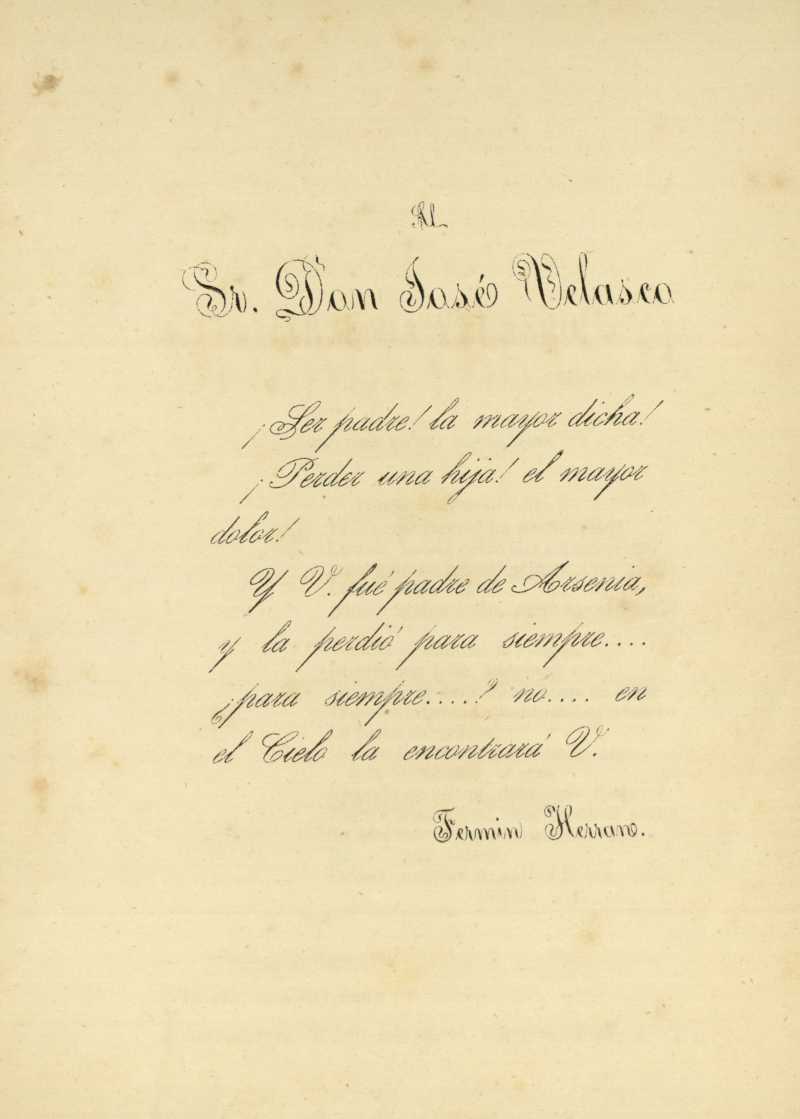 Al
Sr. Don José Velasco
¡Ser padre! la mayor dicha!
¡Perder una hija! el mayor
dolor!
Y V. fué padre de Arsenia,
y la perdió para siempre....
¿para siempre....? no.... en
el Cielo la encontrará V.
Fermin Herran.